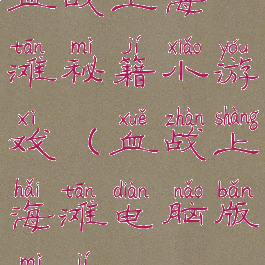 tān mì jí xiǎo yóu
滩秘籍小游
xì xuě zhàn shàng
戏（血战上
hǎi tān diàn nǎo bǎn
海滩电脑版
mì jí